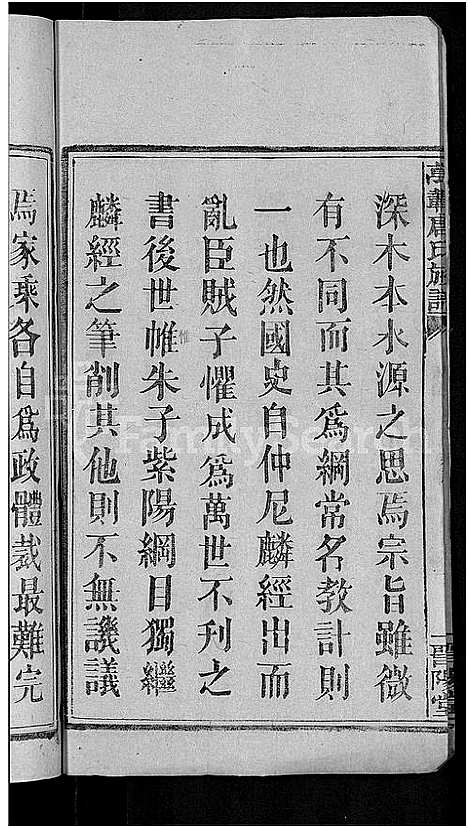 萬華唐氏族譜
一晉陽堂
深木本水源之思焉宗旨雖微
有不同而其爲綱常名教計則
一也然國史自仲尼麟經出而
亂臣賊子懼成爲萬世不刊之
書後世帷朱子紫陽綱目獨繼
麟經之筆削其他則不無譏議
焉家乘各自爲政體裁最難完
FamilySearch